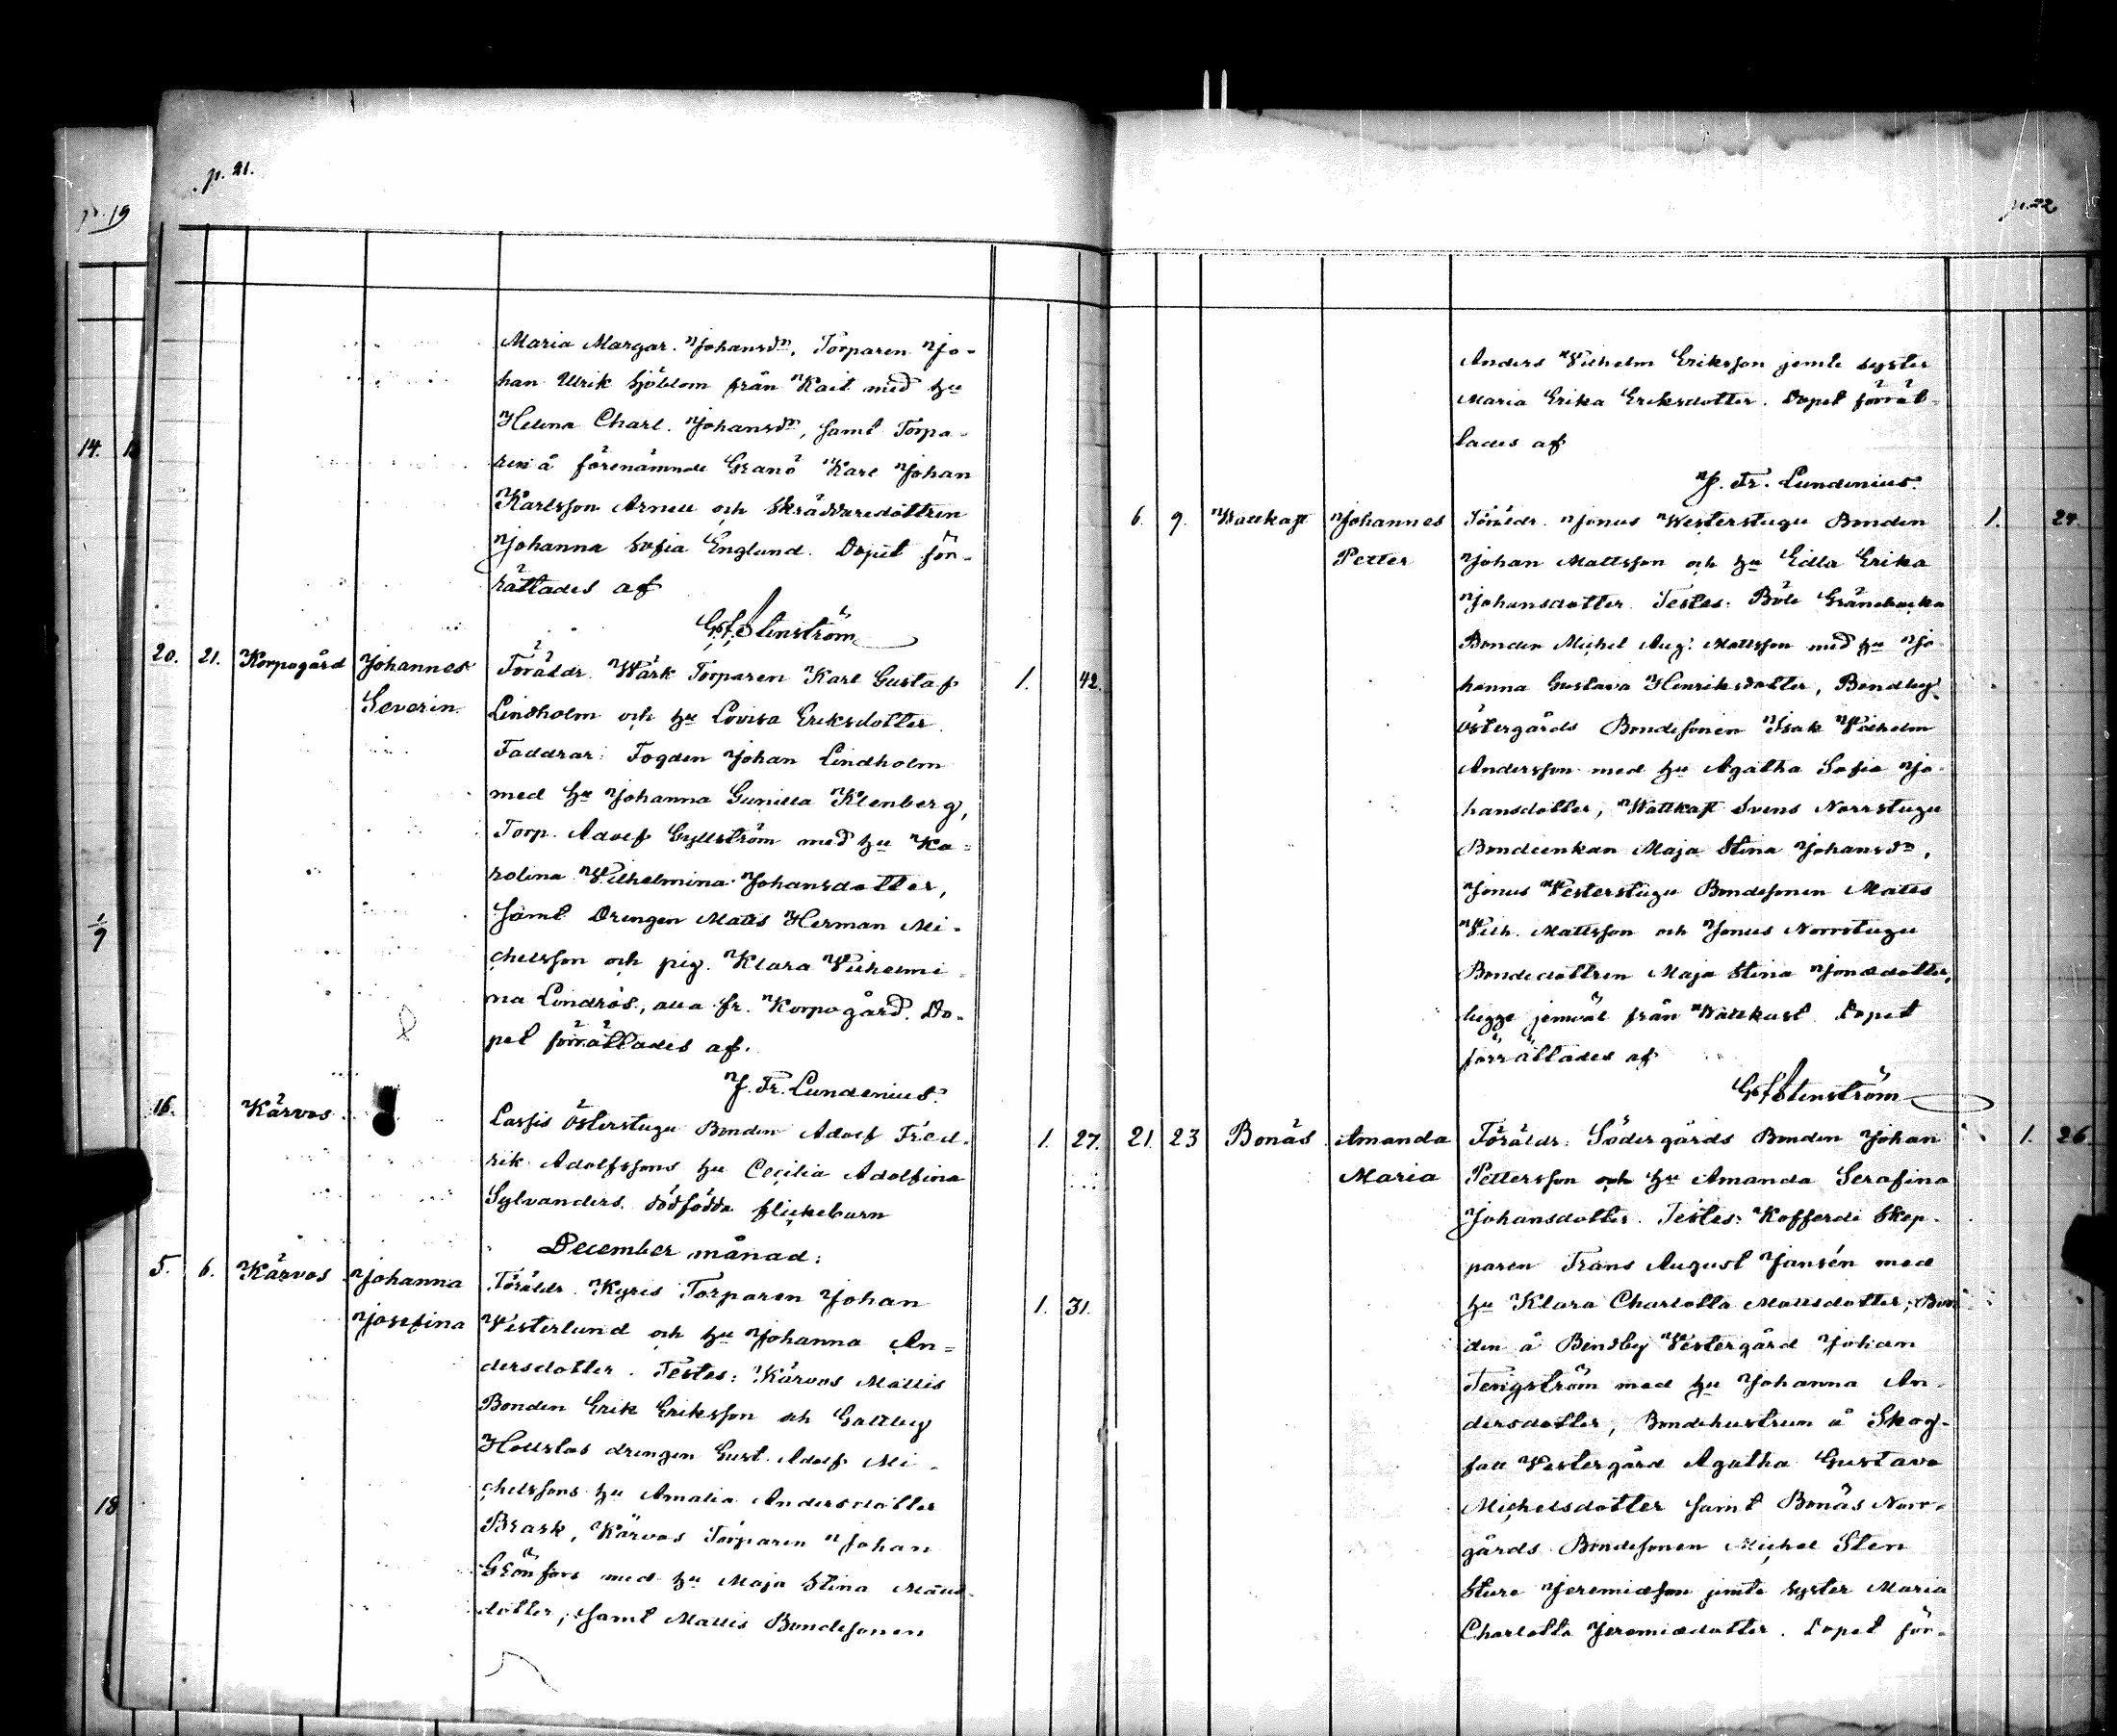 p. 19
14.
18
p. 21.
Maria Margar. Johansdr, Torparen Jo-
han Ulrik Sjöblom från Kait med hu
Helena Charl. Johansdr, samt Torpa-
ren å förenämnde Granö Karl Johan
Karlsson Arnell och Skräddaredottren
Johanna Sofia Englund. Dopet för-
rättades af
G. A. Stenström
20. 21. Korpogård Johannes Föräldr. Wärk Torparen Karl Gustaf 1. 42.
Severin. Lindholm och hu Lovisa Eriksdotter.
Faddrar: Fogden Johan Lindholm
med hu Johanna Gunilla Klenberg,
Torp. Adolf Gyllström med hu Ka-
rolina Wilhelmina Johansdotter,
samt Drengen Matts Herman Mi-
chelsson och pig. Klara Vilhelmi-
na Lindros, alla fr. Korpogård. Do-
pet förrättades af.
J. Fr. Lundenius.
16. Kärvos Lassis Österstugu Bonden Adolf Fred- 1. 27.
rik Adolfssons hu Cecilia Adolfina
Sylvanders dödfödda flickebarn
December månad:
5. 6. Kärvos Johanna Föräldr. Kyris Torparen Johan 1. 31.
Josefina Vesterlund och hu Johanna An-
dersdotter. Testes: Kärvos Mattis
Bonden Erik Eriksson och Galtby
drengen Gust. Adolf Mi-
chelssons hu Amalia Andersdotter
Brask, Kärvos Torparen Johan
Grönfors med hu Maja Stina Matts-
dotter, samt Mattis Bondesonen
p. 22
Anders Vilhelm Eriksson jemte syster
Maria Erika Eriksdotter. Dopet förrät-
tades af
J. Fr. Lundenius.
6. 9. Wattkast Johannes Föräldr. Jonus Westerstugu Bonden 1. 24
Petter Johan Mattsson och hu Edla Erika
Johansdotter. Testes: Böle Gränsbacka
Bonden Michel Aug. Mattsson med hu Jo-
hanna Gustava Henriksdotter, Bendby
Östergårds Bondesonen Isak Wilhelm
Andersson med hu Agatha Sofia Jo-
hansdotter, Wattkast Svens Norrstugu
Bondeenkan Maja Stina Johansdr,
Jonus Vesterstugu Bondesonen Matts
Vilh. Mattsson och Jonus Norrstugu
Bondedottren Maja Stina Jonsdotter,
begge jemväl från Wattkast. Dopet
förrättades af
G. A. Stenström
21. 23 Bonäs Amanda Föräldr: Södergårds Bonden Johan 1. 26
Maria Pettersson och hu Amanda Serafina
Johansdotter. Testes: Kofferdi Skep-
paren Frans August Jansén med
hu Klara Charlotta Mattsdotter; Bon-
den å Bendby Vestergård Johan
Tengström med hu Johanna An-
dersdotter, Bondehustrun å Skog-
fall Vestergård Agatha Gustava
Michelsdotter samt Bonäs Norr-
gårds Bondesonen Michel Sten
Sture Jeremiasson jemte syster Maria
Charlotta Jeremiædotter. Dopet för-